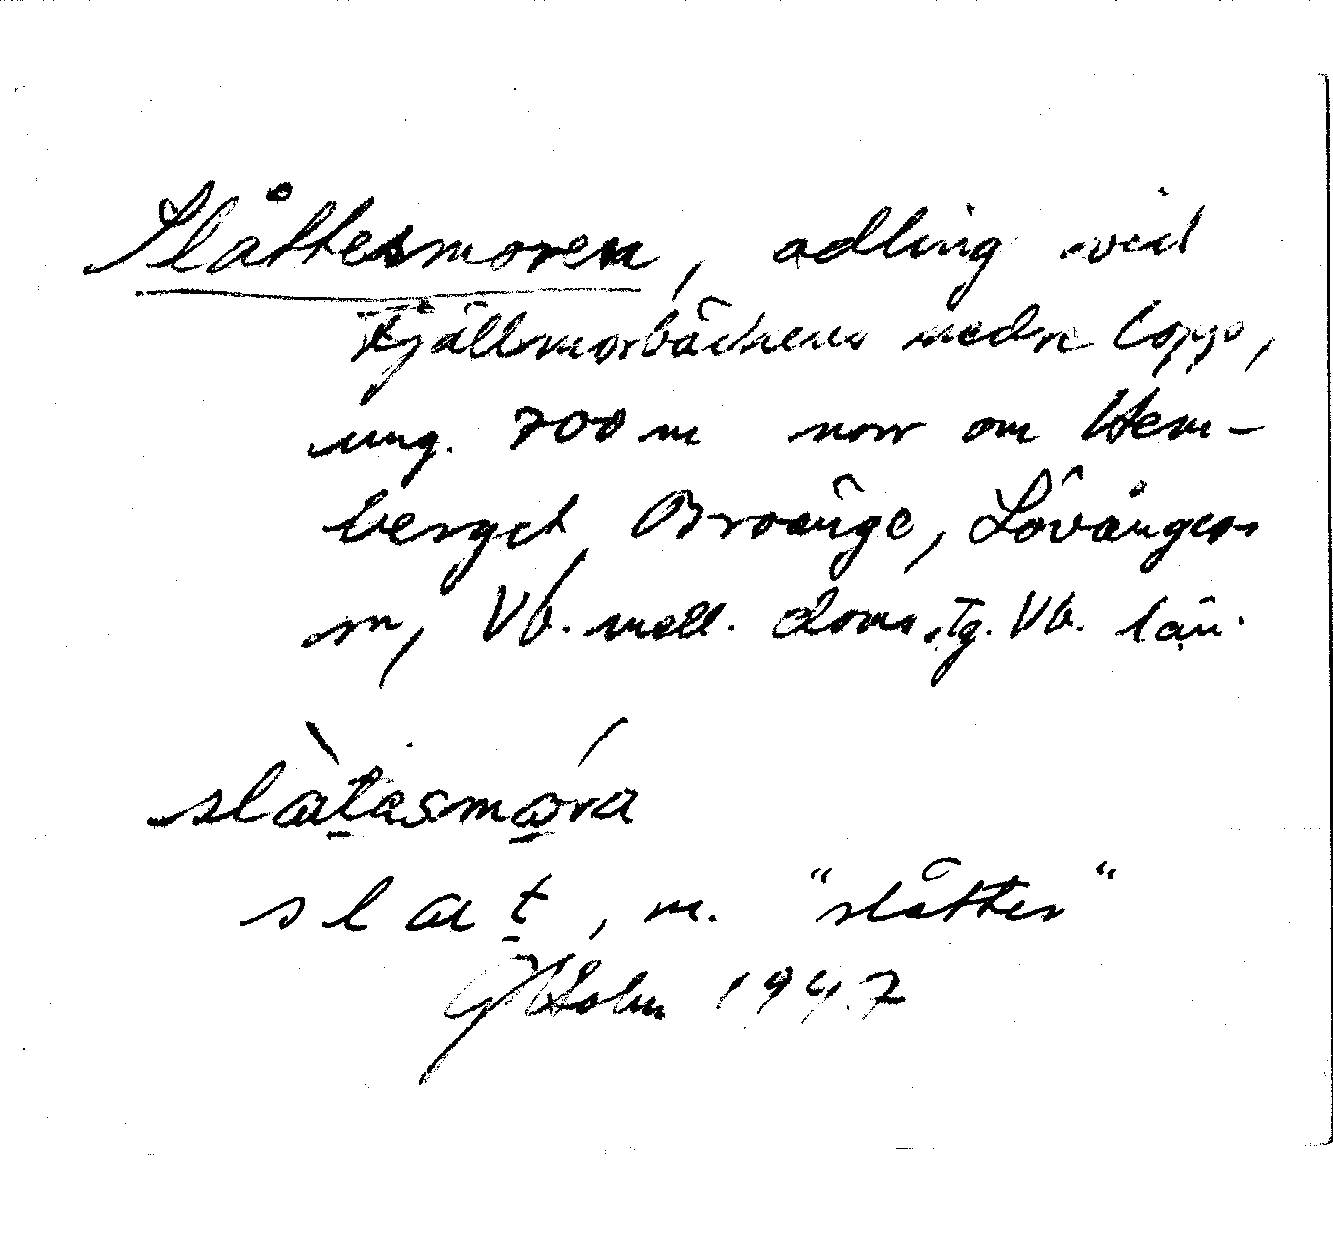 Slåttesmoren, odling vid
Fjällmorbäckens nedre lopp,
ung. 700 m norr om Hem-
berget, Broänge, Lövångers
sn, Vb. mell. doms. tg. Vb. län.
slàtasmóra
slat, m. "slåtter"
Holm 1947